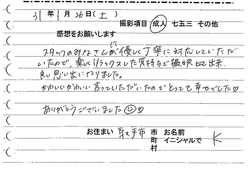 31年1月26日(土)
撮影項目 成人 七五三 その他
感想をお願いします
スタッフのみなさんが優しく丁寧に対応していただ
いたので、楽しくリラックスした気持ちで撮影出来、
良い思い出になりました。
かわいいかわいい言っていただいたのでとっても幸せでした
ありがとうございました
お住まい 市 町 村 お名前 イニシャルで K